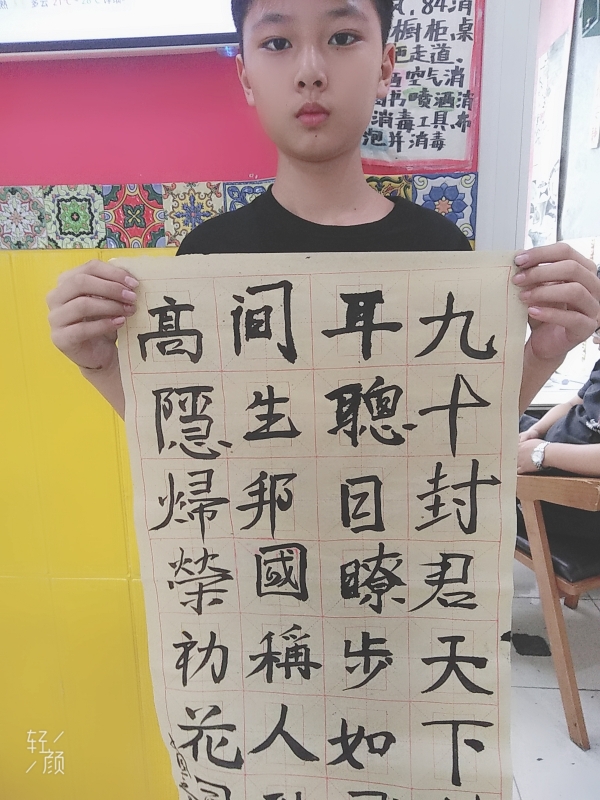 九十封君天下
耳聰目瞭步如
間生邦國稱人
高隱帰榮初花
84消
橱柜,桌
走道,
空气消
喷洒消
消毒工具.布
泡并消毒
轻
颜